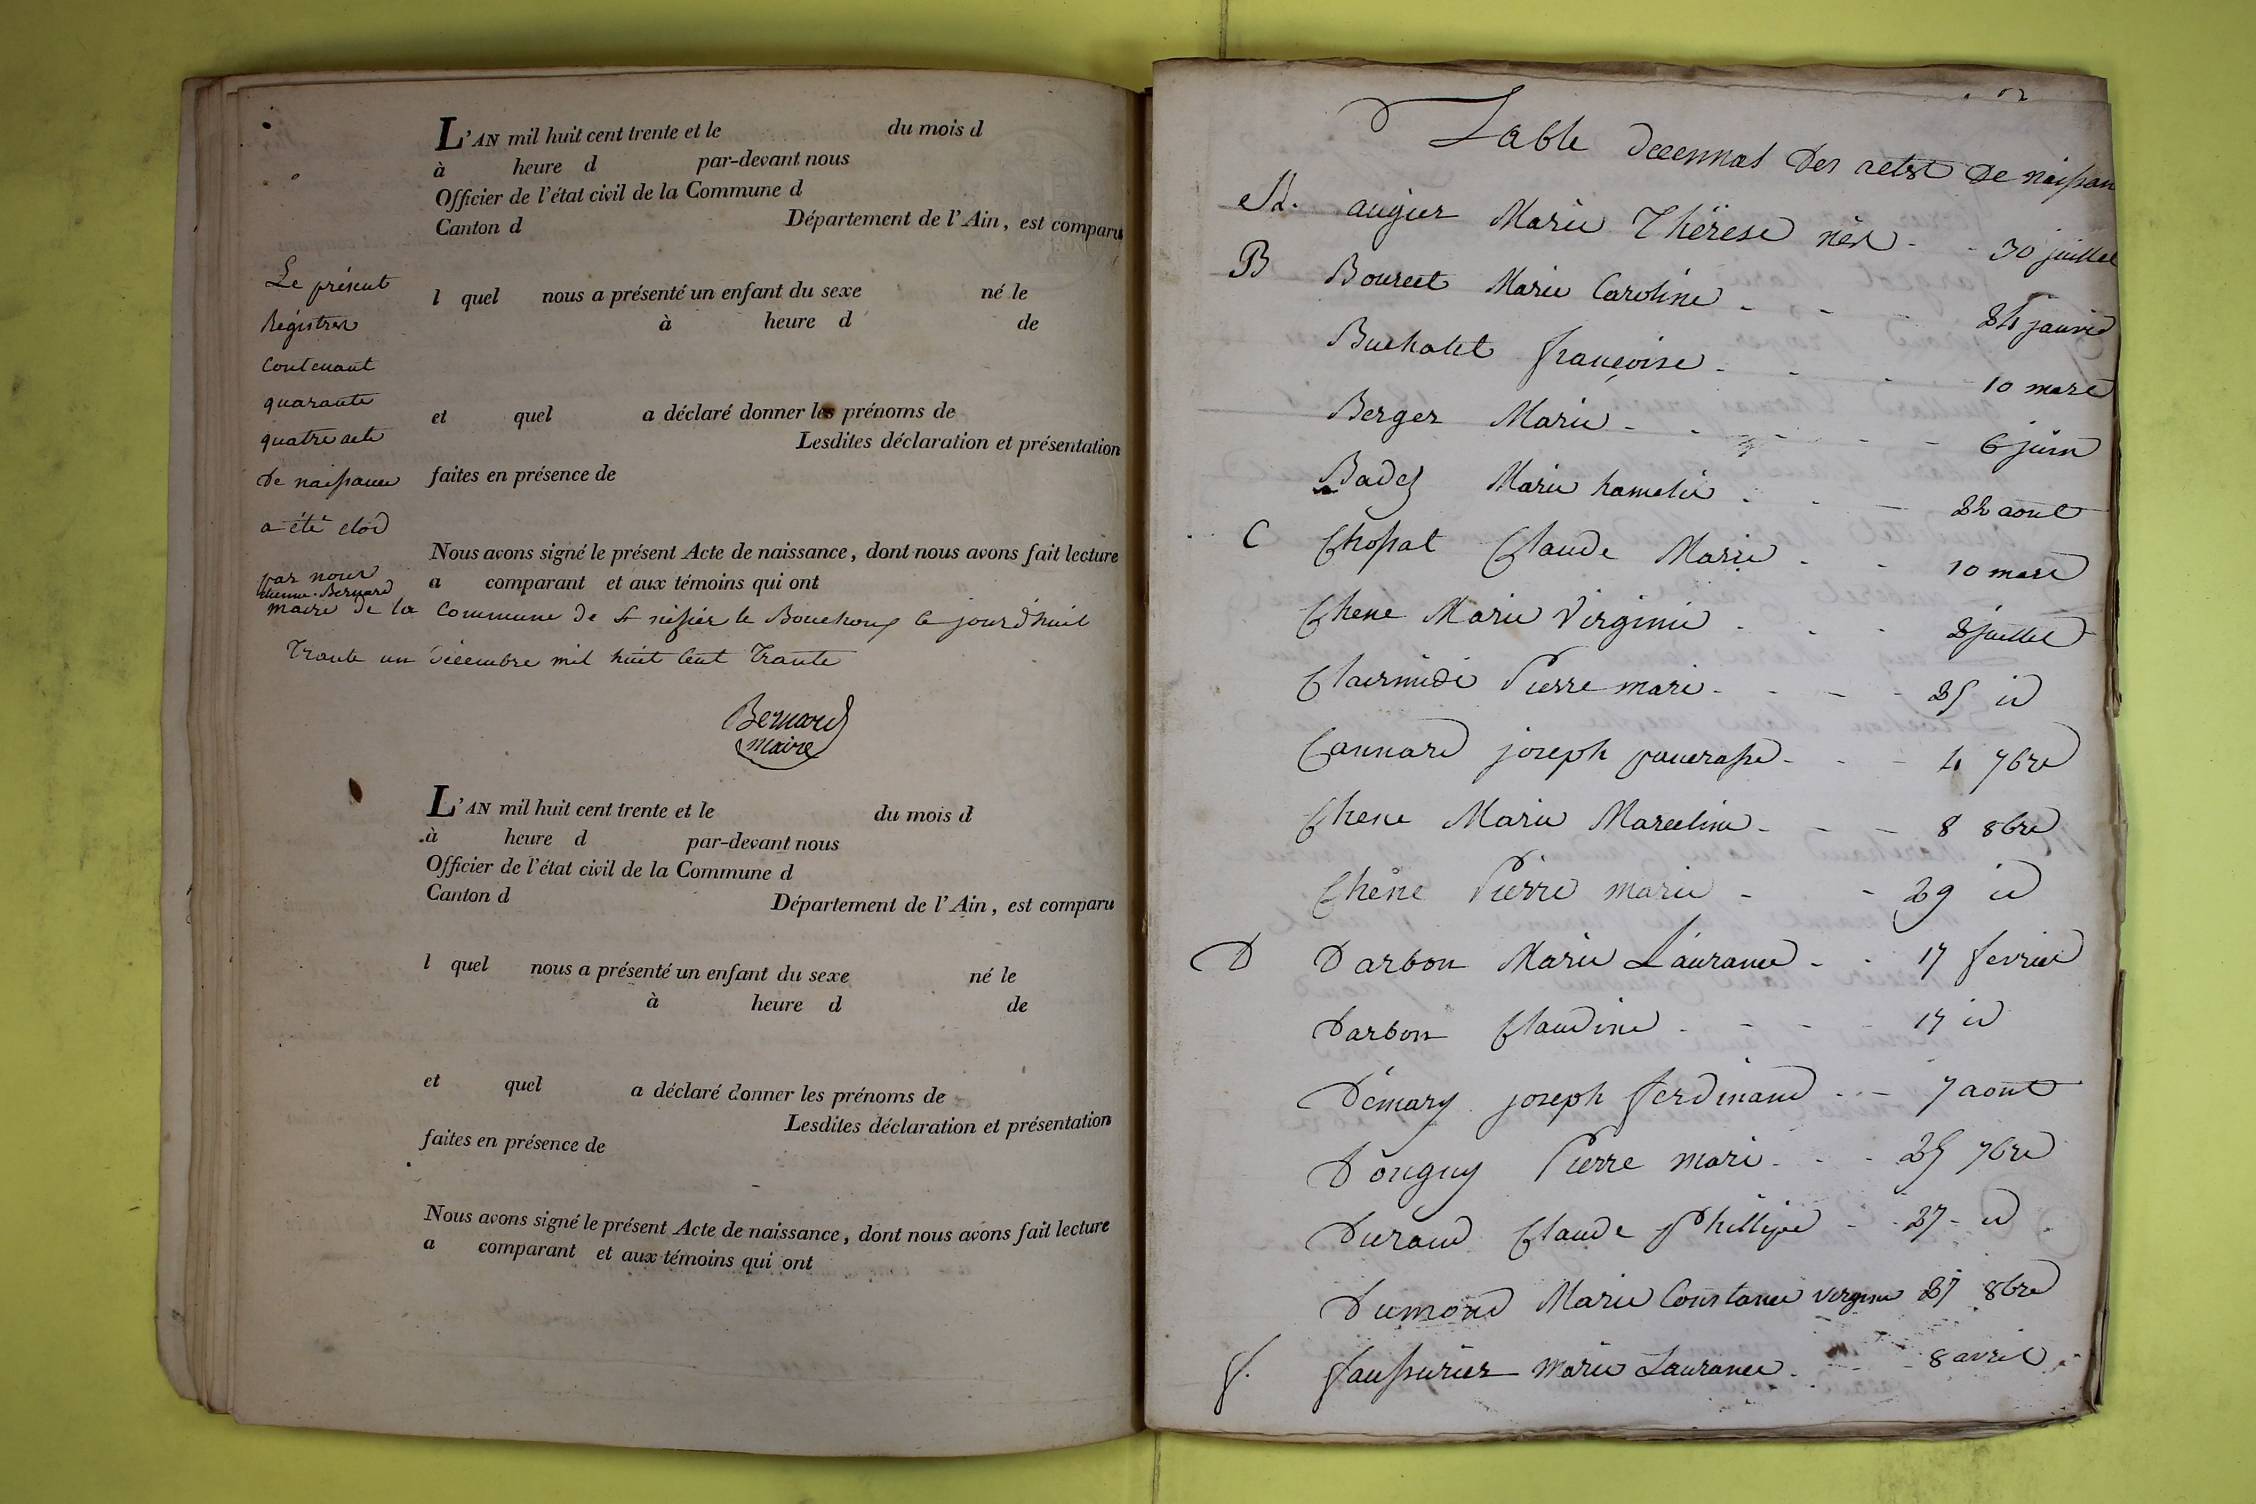 L'AN mil huit cent trente et le du mois d
à heure d par-devant nous
Officier de l'état civil de la Commune d
Canton d Département de l'Ain, est comparu
l quel nous a présenté un enfant du sexe né le
à heure d de
et quel a déclaré donner les prénoms de
Lesdites déclaration et présentation
faites en présence de
Nous avons signé le présent Acte de naissance, dont nous avons fait lecture
a comparant et aux témoins qui ont
Le présent
Régistre
Contenant
quarante
quatre acte
de naissance
a été clos
par nous
etienne Bernard
maire de la Commune de St nisier le Bouchoux ce jourd'huit
Trante un décembre mil huit Cent Trante
Bernard
maire
L'AN mil huit cent trente et le du mois d
à heure d par-devant nous
Officier de l'état civil de la Commune d
Canton d Département de l'Ain, est comparu
l quel nous a présenté un enfant du sexe né le
à heure d de
et quel a déclaré donner les prénoms de
Lesdites déclaration et présentation
faites en présence de
Nous avons signé le présent Acte de naissance, dont nous avons fait lecture
a comparant et aux témoins qui ont
Table decennal des actes de naissan
A. augier Marie Thérese née - - 30 juillet
B Bourcet Marie Caroline - - - 24 janvie
Buchalet françoise - - - 10 mars
Berger Marie - - - - - 6 juin
Badez Marie - - - 22 aout
C Chossat Claude Marie - - 10 mars
Chene Marie Virginie - - - 2 juillet
Clairmidi Pierre mari - - - - 25 id
Cannard joseph pancrasse - - - 4 7bre
Chene Marie Marceline - - - 8 8bre
Chêne Pierre marie - - 29 id
D Darbon Marie Laurance - - 17 fevrier
Darbon Claudine - - - - 17 id
Démary joseph ferdinand - - - 7 aout
Donguy Pierre mari - - - 25 7bre
Durand Claude Phillipe - - 27 - id
Dumond Marie Constance virginie 27 8bre
f. faussurier marie Laurance - - - 8 avril